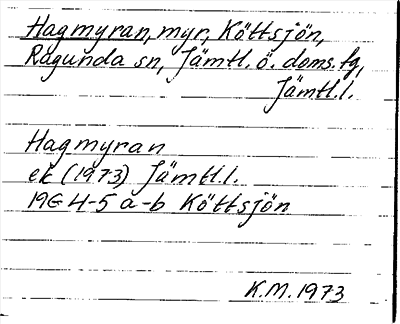 Hagmyran, myr, Köttsjön,
Ragunda sn, Jämtl. ö. doms. fg,
Jämtl.l.
Hagmyran
ek (1973) Jämtl.l.
19G 4-5 a-b Köttsjön
K.M. 1973